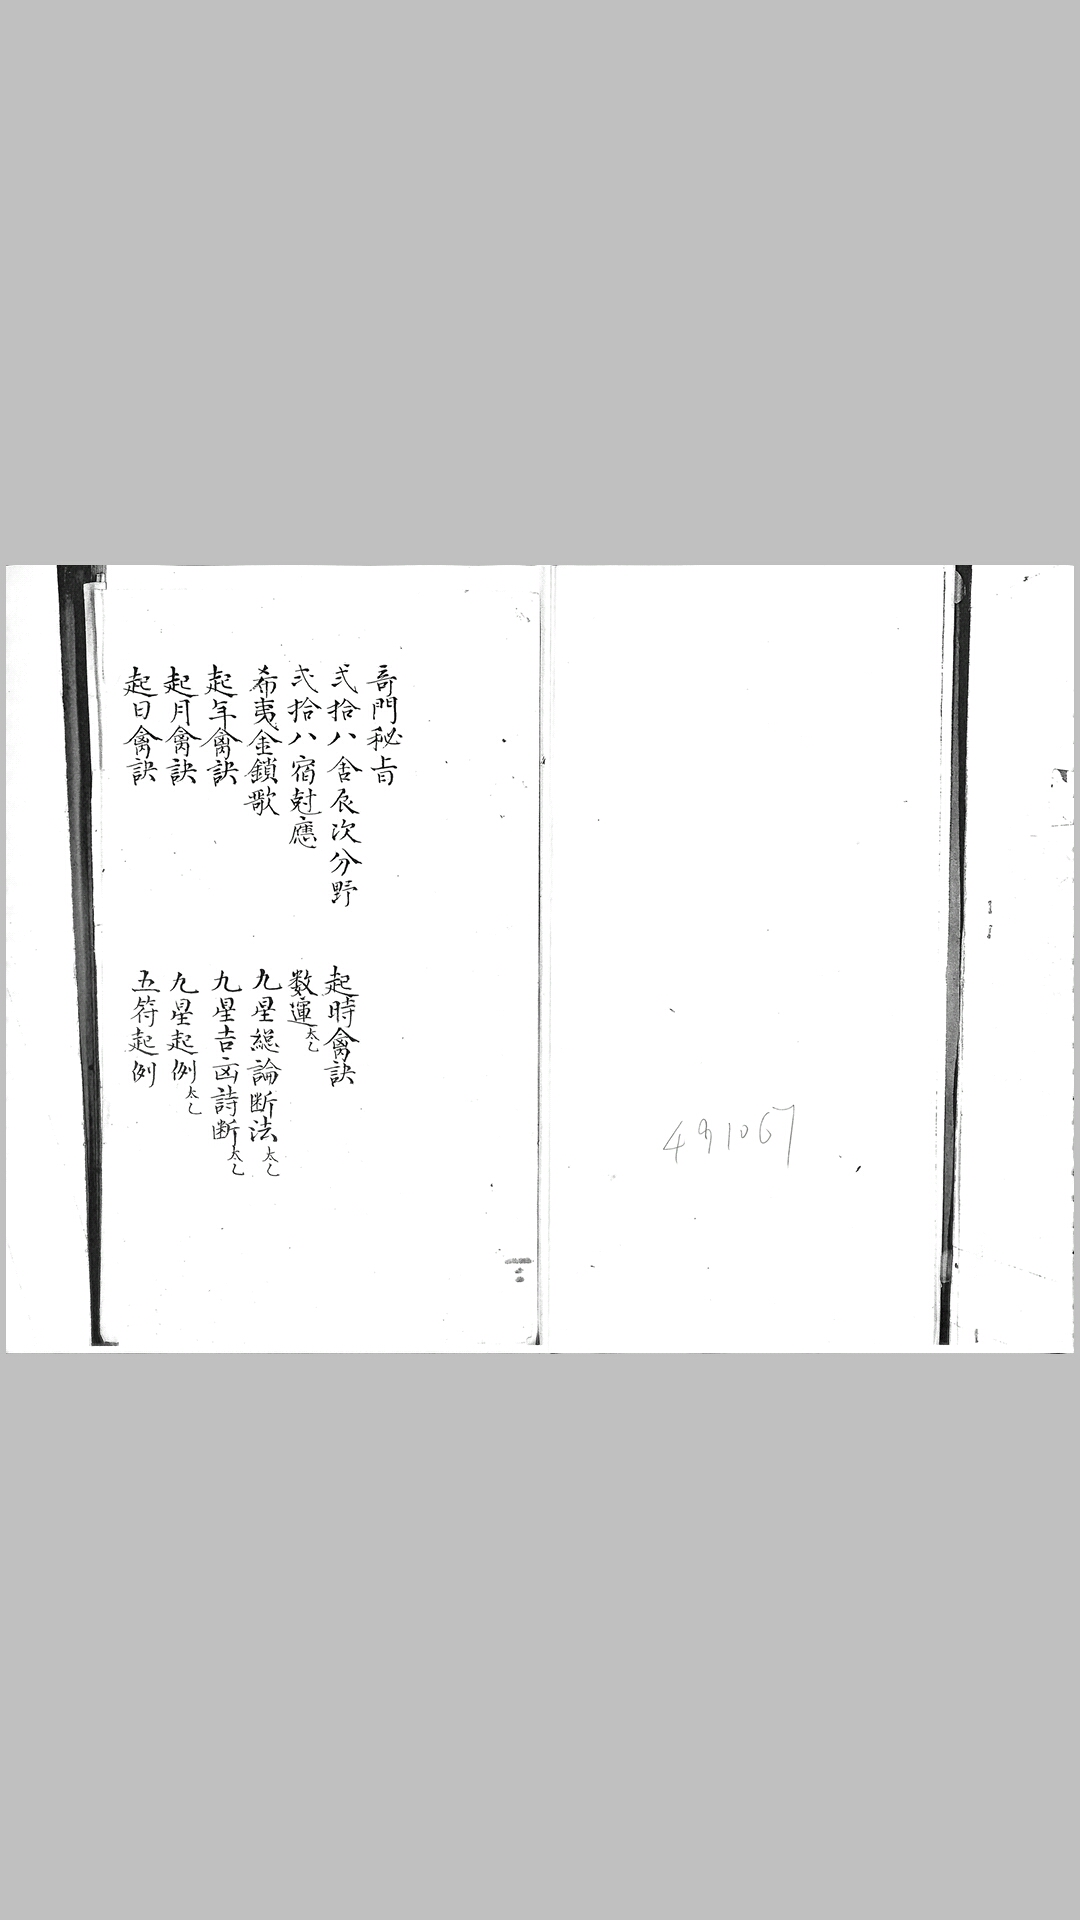 奇門秘旨
弍拾八舍辰次分野
弍拾八宿尅應
希夷金鎖歌
起年禽訣
起月禽訣
起日禽訣
起時禽訣
数運太乙
九星総論断法太乙
九星吉凶詩断太乙
九星起例太乙
五符起例
491067